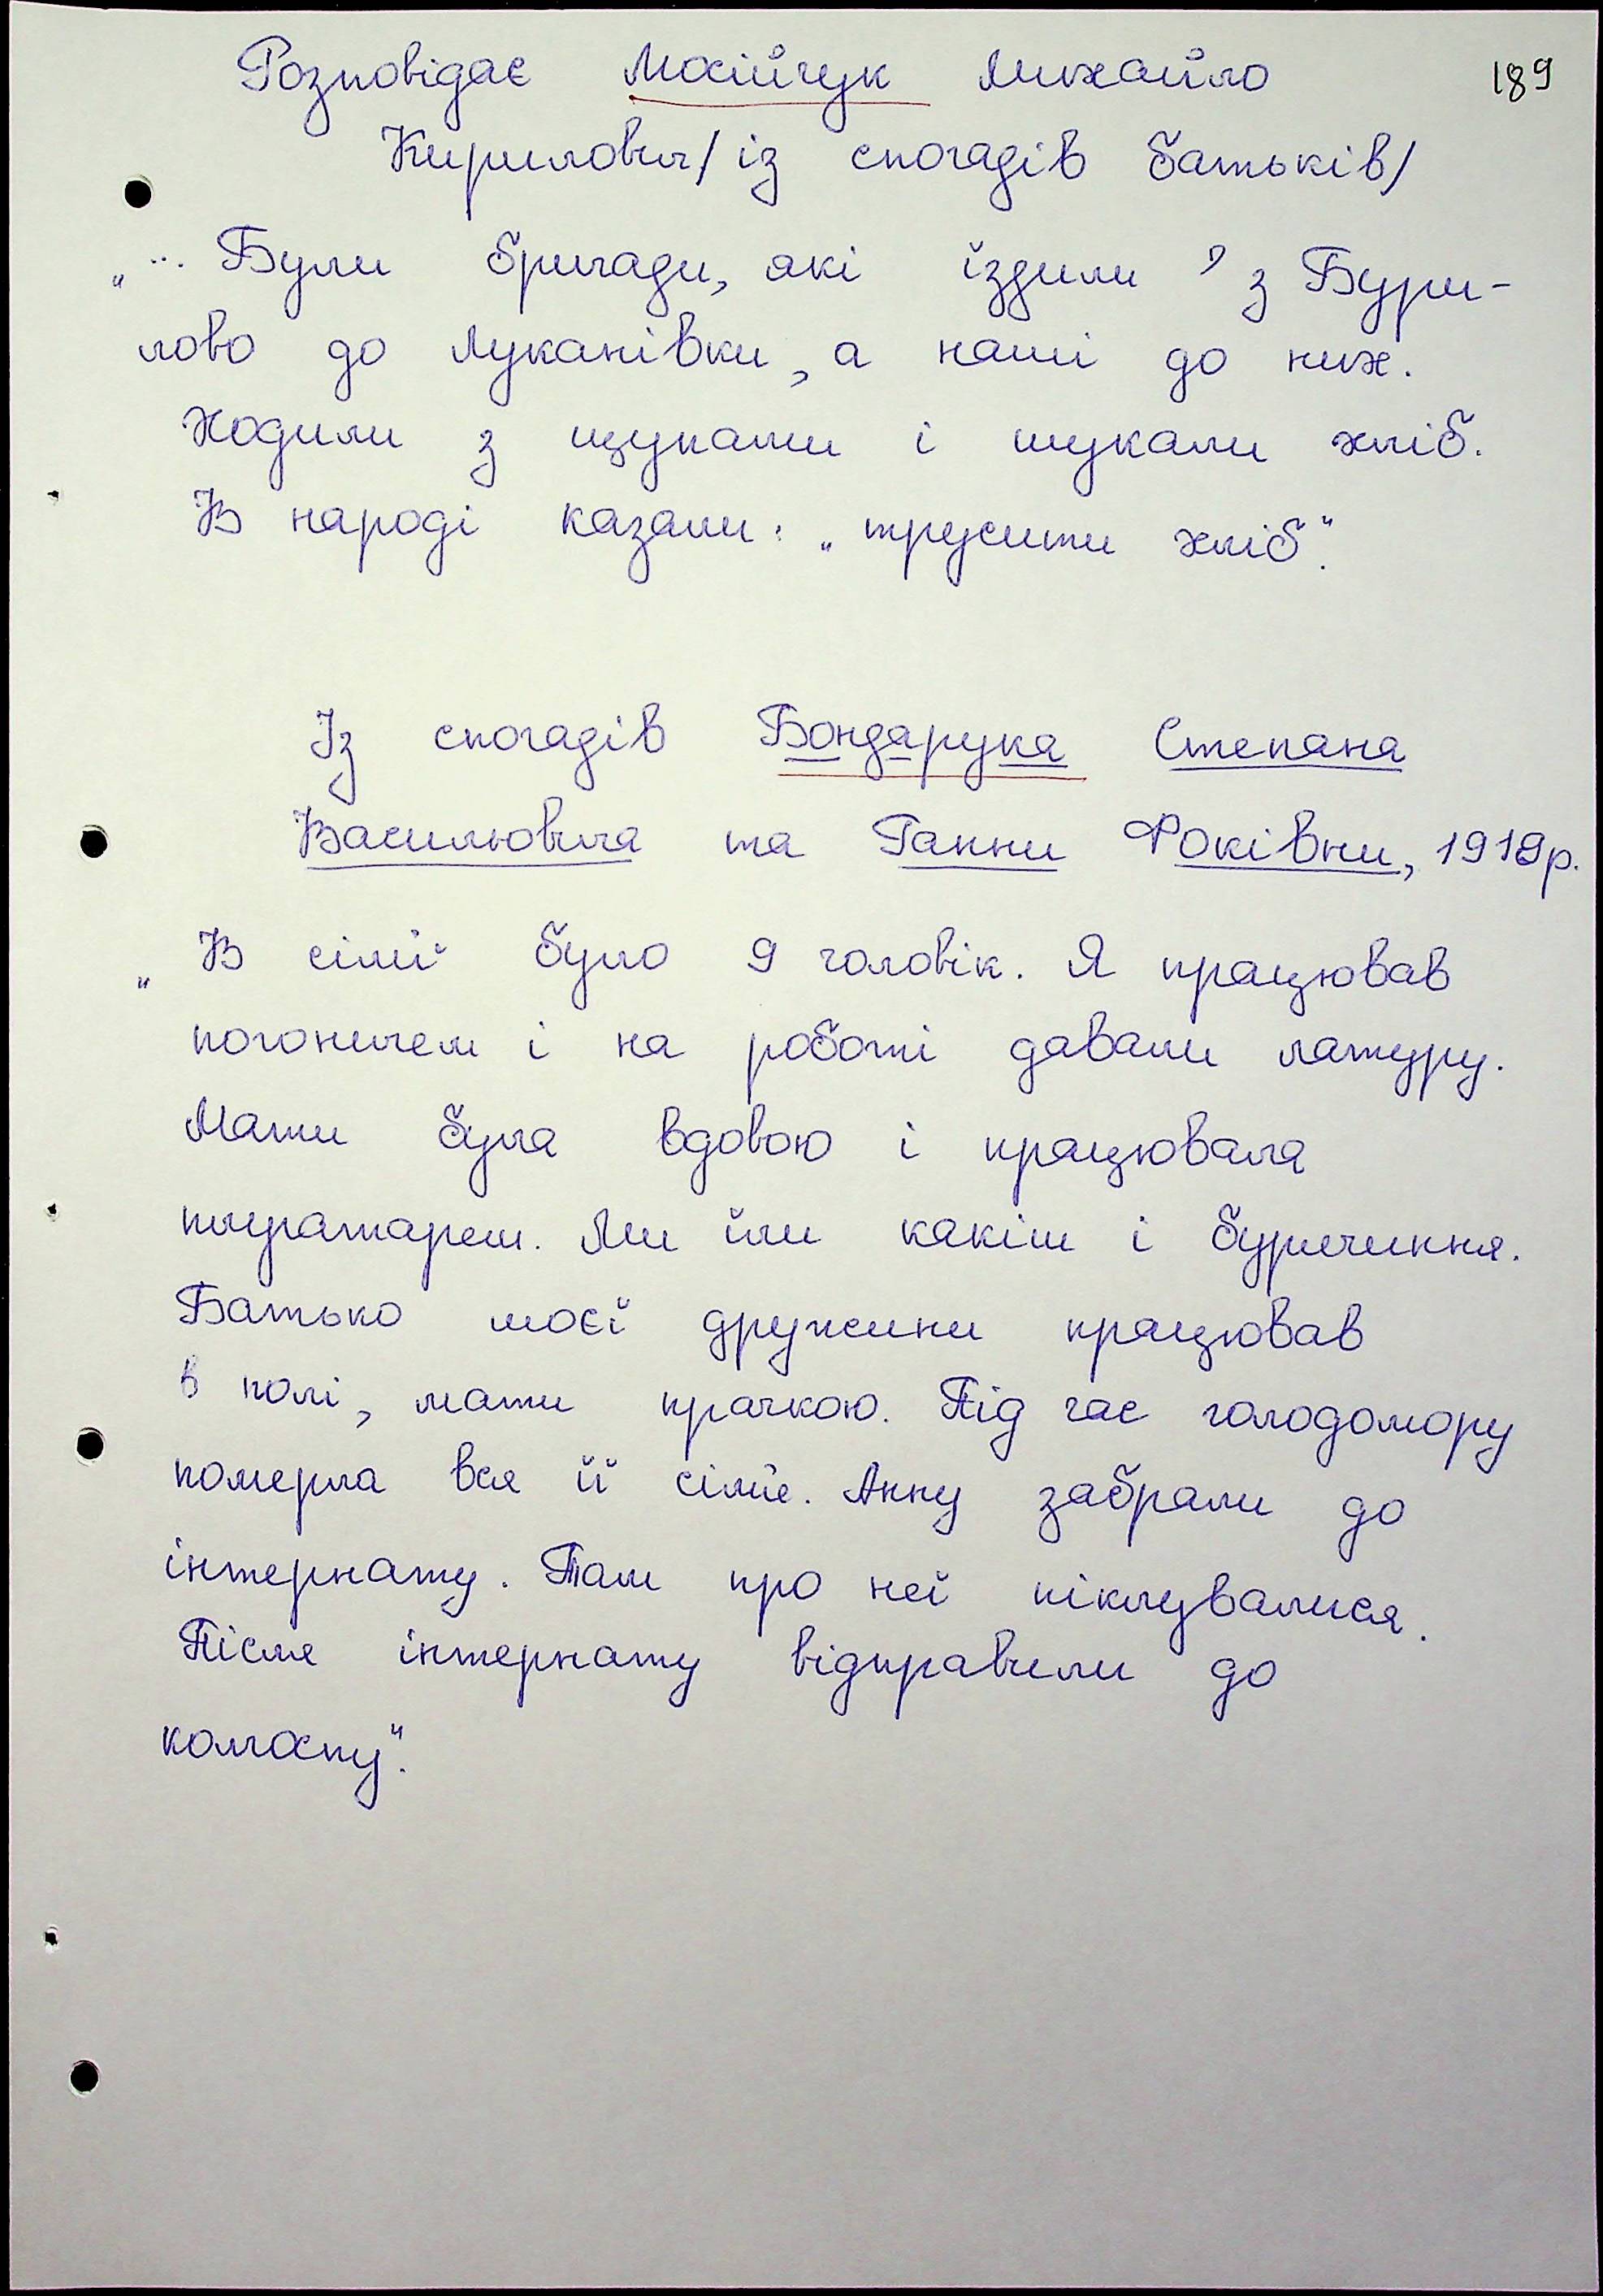 189
Розповідає Мосійчук Михайло
Кирилович /із спогадів батьків/
„... Були бригади, які їздили з Бури-
лово до Луканівки, а наші до них.
Ходили з щупами і шукали хліб.
В народі казали: „трусити хліб".
Із спогадів Бондарука Степана
Васильовича та Ганни Фоківни, 1919р.
„В сімї було 9 чоловік. Я працював
погоничем і на роботі давали латуру.
Мати була вдовою і працювала
плугатарем. Ми їли какіш і буречиння.
Батько моєї дружини працював
в полі, мати прачкою. Під час голодомору
померла вся її сімїє. Анну забрали до
інтернату. Там про неї піклувалися.
Після інтернату відправили до
колгоспу".